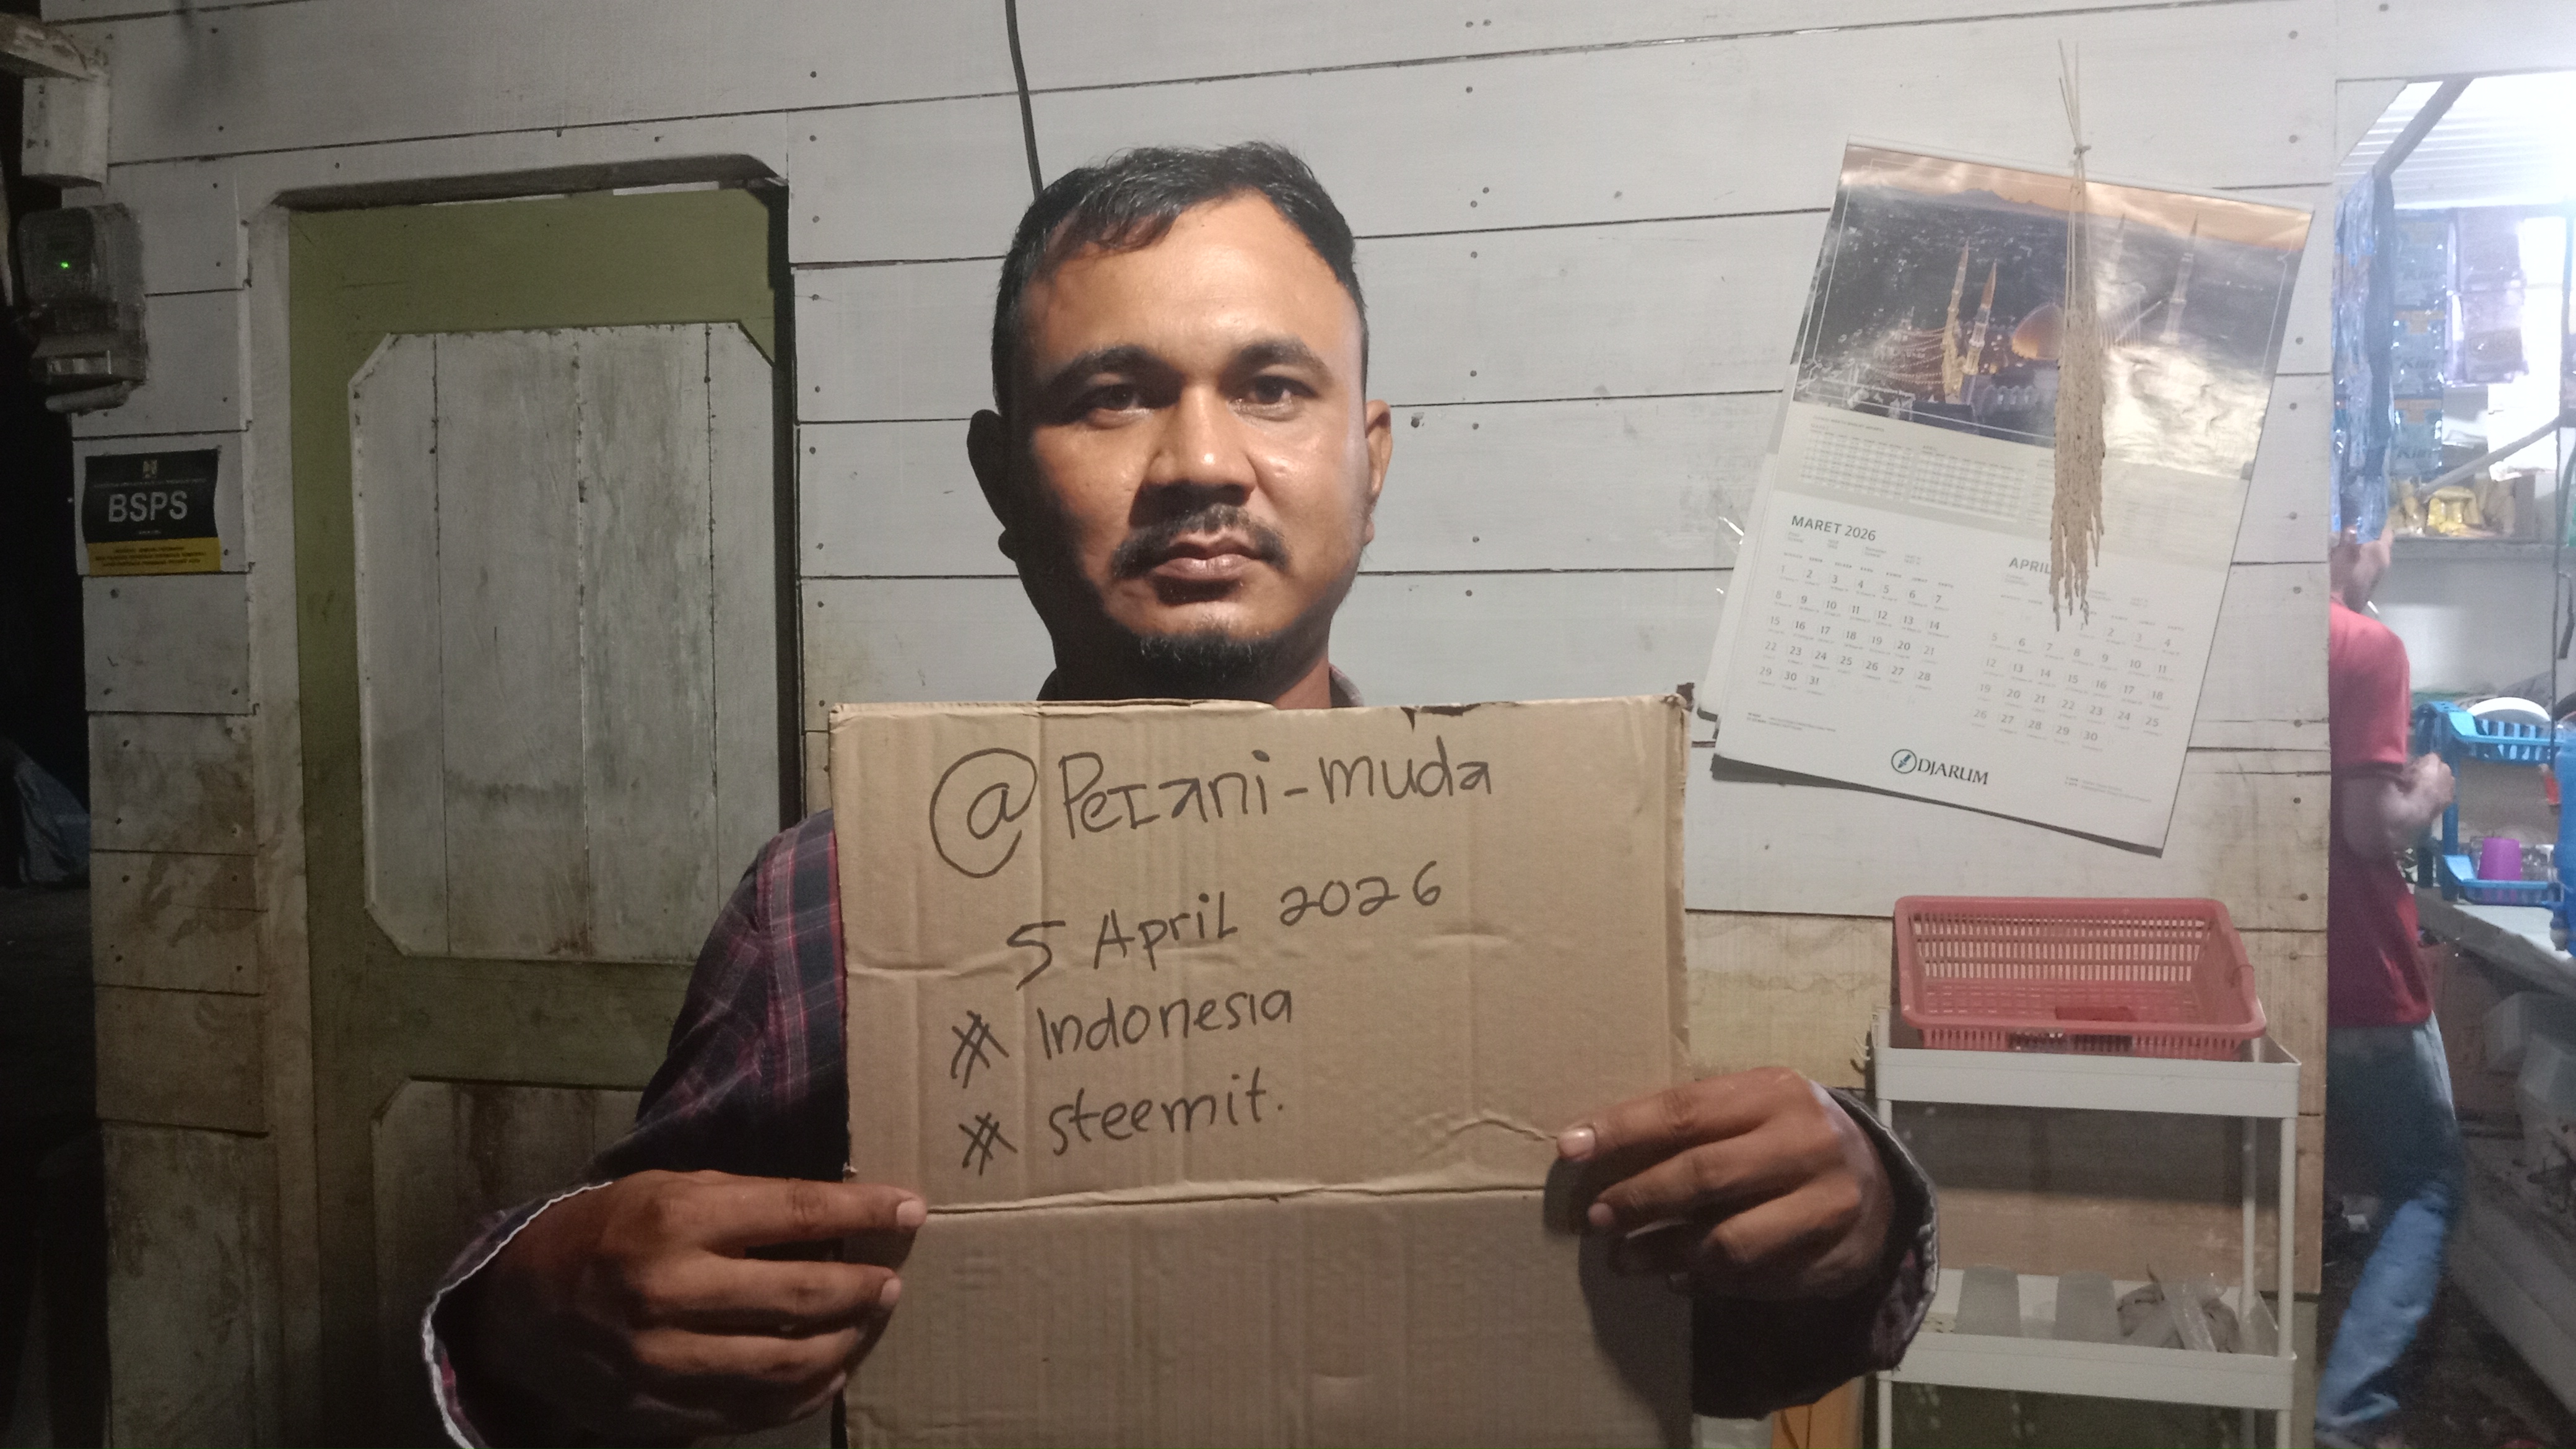 @Petani-muda
5 April 2026
# Indonesia
# steemit.
BSPS
MARET 2026
1 2 3 4 5 6 7
8 9 10 11 12 13 14
15 16 17 18 19 20 21
22 23 24 25 26 27 28
29 30 31
APRIL
1 2 3 4
5 6 7 8 9 10 11
12 13 14 15 16 17 18
19 20 21 22 23 24 25
26 27 28 29 30
DJARUM